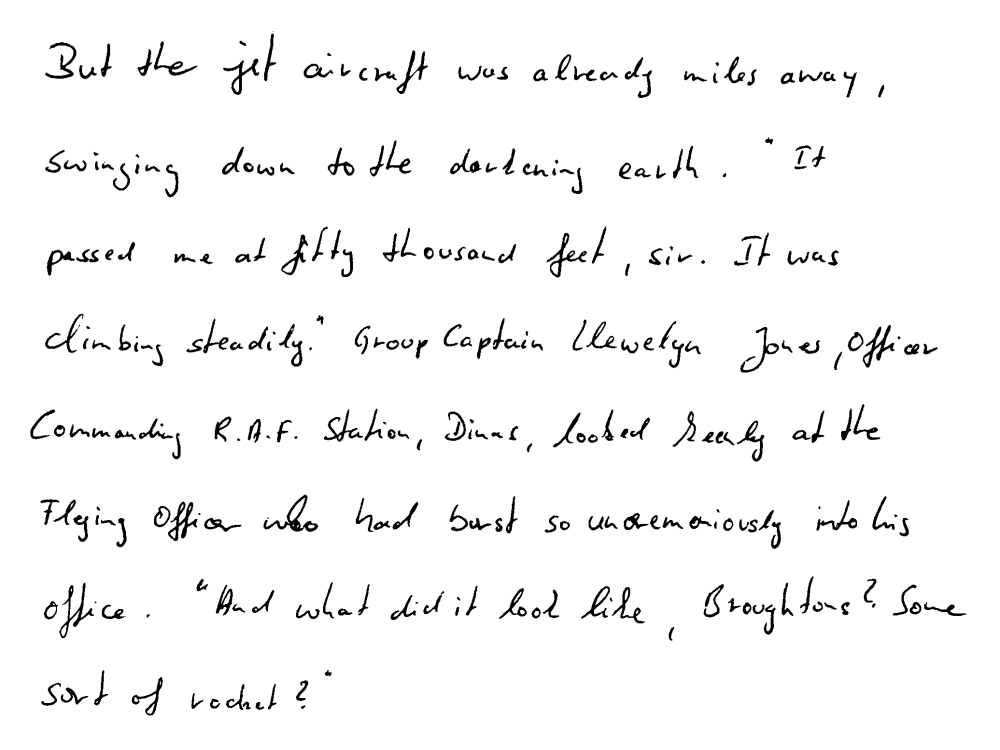 But the jet aircraft was already miles away,
swinging down to the darkening earth. "It
passed me at fifty thousand feet, sir. It was
climbing steadily." Group Captain Llewelyn Jones, Officer
Commanding R.A.F. Station, Dinas, looked keenly at the
Flying Officer who had burst so unceremoniously into his
office. "And what did it look like, Broughtons? Some
sort of rocket?"